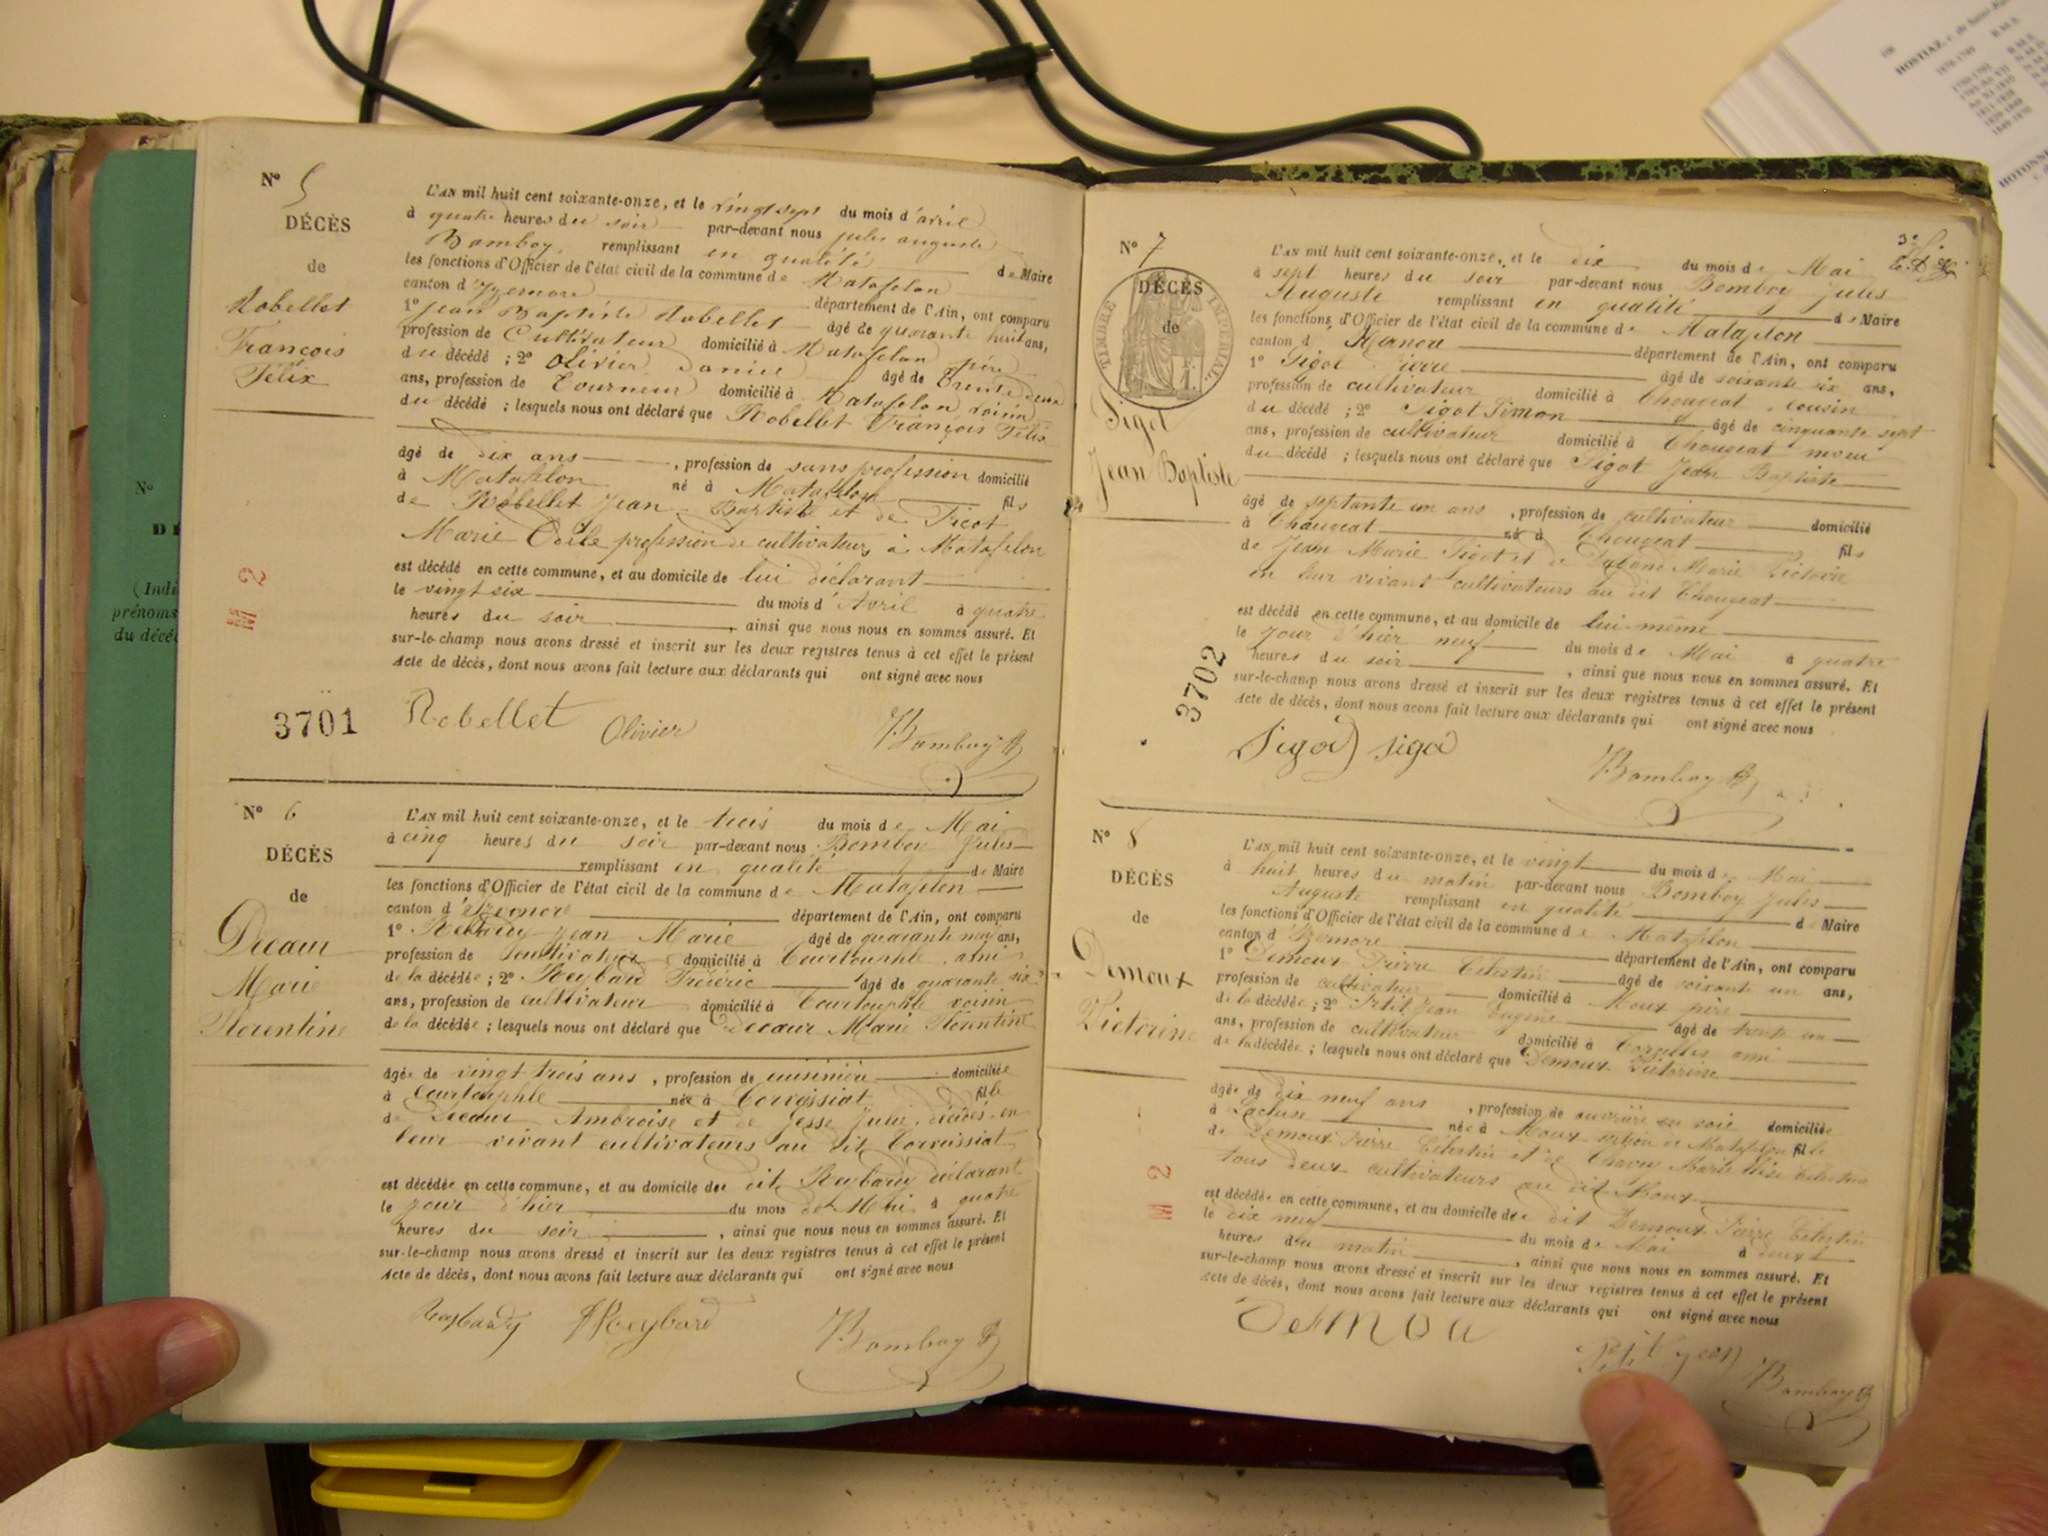 N° 5
DÉCÈS
de
Robellet
François
Félix
L'AN mil huit cent soixante-onze, et le vingt sept du mois d'avril
à quatre heures du soir par-devant nous jules auguste
Bomboy remplissant en qualité de Maire
les fonctions d'Officier de l'état civil de la commune de Matafelon
canton d'Izernore département de l'Ain, ont comparu
1° Jean Baptiste Robellet âgé de quarante huit ans,
profession de Cultivateur domicilié à Matafelon père
du décédé ; 2° Olivier Daniel âgé de trente deux
ans, profession de Tourneur domicilié à Matafelon voisin
du décédé ; lesquels nous ont déclaré que Robellet François Félix
âgé de dix ans , profession de sans profession domicilié
à Matafelon né à Matafelon fils
de Robellet Jean Baptiste et de Ticot
Marie profession de cultivateurs à Matafelon
est décédé en cette commune, et au domicile de lui déclarant
le vingt six du mois d'Avril à quatre
heures du soir , ainsi que nous nous en sommes assuré. Et
sur-le-champ nous avons dressé et inscrit sur les deux registres tenus à cet effet le présent
Acte de décès, dont nous avons fait lecture aux déclarants qui ont signé avec nous
3701
Robellet Olivier Bomboy
N° 6
DÉCÈS
de
Decœur
Marie
Florentine
L'AN mil huit cent soixante-onze, et le trois du mois de Mai
à cinq heures du soir par-devant nous Bomboy Jules
remplissant en qualité de Maire
les fonctions d'Officier de l'état civil de la commune de Matafelon
canton d'Izernore département de l'Ain, ont comparu
1° Reybard Jean Marie âgé de quarante neuf ans,
profession de Cultivateur domicilié à Courtouphle ami
de la décédée ; 2° Reybard Fréderic âgé de quarante six
ans, profession de cultivateur domicilié à Courtouphle voisin
de la décédée ; lesquels nous ont déclaré que Decœur Marie Florentine
âgée de vingt trois ans , profession de cuisinière domiciliée
à Courtouphle née à Corveissiat fille
de Decœur Ambroise et de Jesse Julie, décédés en
leur vivant cultivateurs au dit Corveissiat
est décédée en cette commune, et au domicile du dit Reybard déclarant
le jour d'hier du mois de Mai à quatre
heures du soir , ainsi que nous nous en sommes assuré. Et
sur-le-champ nous avons dressé et inscrit sur les deux registres tenus à cet effet le présent
Acte de décès, dont nous avons fait lecture aux déclarants qui ont signé avec nous
Reybard Reybard Bomboy
N° 7
TIMBRE IMPÉRIAL
DÉCÈS
de
Sigot
Jean Baptiste
L'AN mil huit cent soixante-onze, et le dix du mois de Mai
à sept heures du soir par-devant nous Bomboy Jules
Auguste remplissant en qualité de Maire
les fonctions d'Officier de l'état civil de la commune de Matafelon
canton d Izernore département de l'Ain, ont comparu
1° Sigot Pierre âgé de soixante six ans,
profession de cultivateur domicilié à Chougeat, cousin
du décédé ; 2° Sigot Simon âgé de cinquante sept
ans, profession de cultivateur domicilié à Chougeat neveu
du décédé ; lesquels nous ont déclaré que Sigot Jean Baptiste
âgé de septante un ans , profession de cultivateur domicilié
à Chougeat né à Chougeat fils
de Jean Marie Sigot et de Marie Victoire
en leur vivant cultivateurs au dit Chougeat
est décédé en cette commune, et au domicile de lui-même
le jour d'hier neuf du mois de Mai à quatre
heures du soir , ainsi que nous nous en sommes assuré. Et
sur-le-champ nous avons dressé et inscrit sur les deux registres tenus à cet effet le présent
Acte de décès, dont nous avons fait lecture aux déclarants qui ont signé avec nous
3702
Sigod sigo Bomboy
N° 8
DÉCÈS
de
Demoux
Victorine
L'AN mil huit cent soixante-onze, et le vingt du mois de Mai
à huit heures du matin par-devant nous Bomboy Jules
Auguste remplissant en qualité de Maire
les fonctions d'Officier de l'état civil de la commune de Matafelon
canton d'Izernore département de l'Ain, ont comparu
1° Demoux Pierre Célestin âgé de soixante un ans,
profession de cultivateur domicilié à Moux père
de la décédée ; 2° Petit Jean Eugène âgé de trente un
ans, profession de cultivateur domicilié à ami
de la décédée ; lesquels nous ont déclaré que Demoux Victorine
âgée de dix neuf ans , profession de ouvrière en soie domiciliée
à Lacluse née à Moux section de Matafelon fille
de Demoux Pierre Célestin et de Marie Elise
tous deux cultivateurs au dit Moux
est décédée en cette commune, et au domicile du dit Demoux Pierre Célestin
le dix neuf du mois de Mai à deux
heures du matin , ainsi que nous nous en sommes assuré. Et
sur-le-champ nous avons dressé et inscrit sur les deux registres tenus à cet effet le présent
Acte de décès, dont nous avons fait lecture aux déclarants qui ont signé avec nous
Demou
Petit jean Bomboy